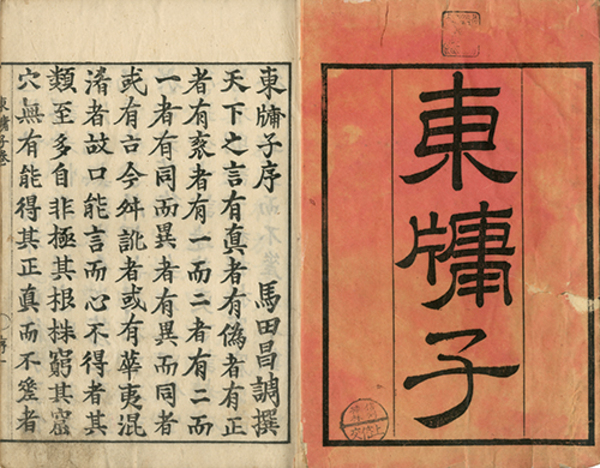 東牅子
東牅子序 馬田昌調撰
天下之言有真者有偽者有正
者有衺者有一而二者有二而
一者有同而異者有異而同者
或有古今舛訛者或有華夷混
淆者故口能言而心不得者其
類至多自非極其根株窮其窟
穴無有能得其正真而不者
東牅子卷
序一